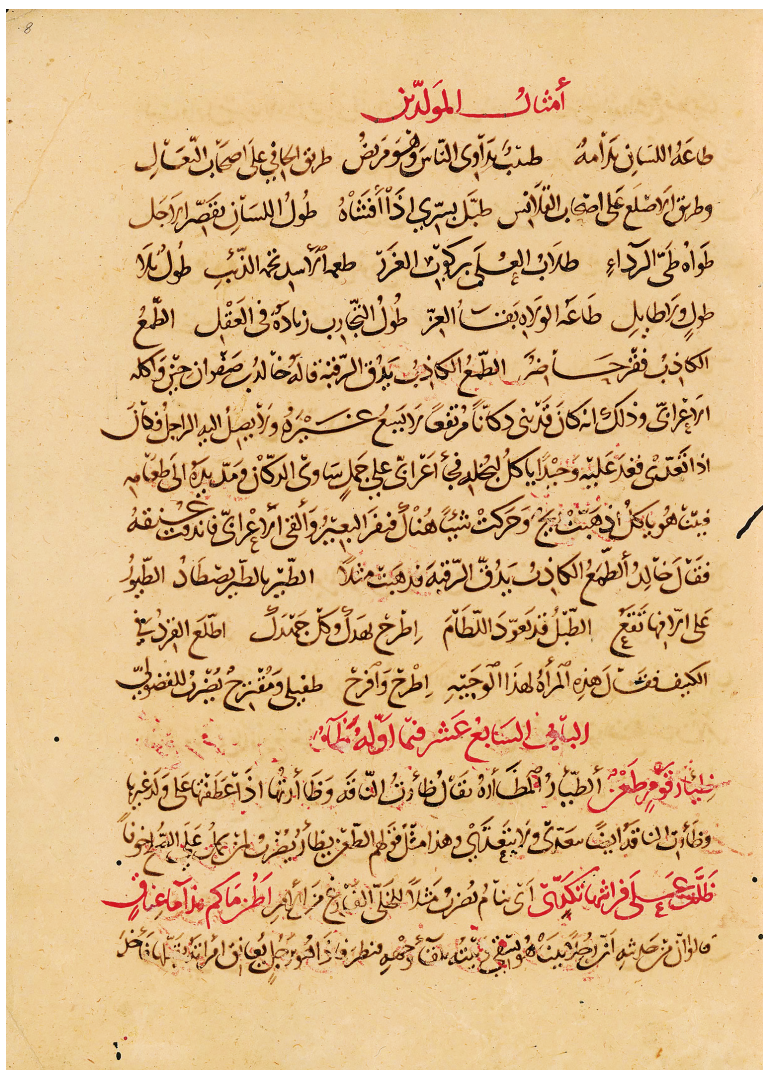 8
أمثال المولدين
طاعة اللسان ندامة طبيب يداوى الناس وهو مريض طريق الحافي على اصحاب النعال
وطريق الاصلع على اصحاب القلانس طبل بسري اذا أفشاه طول اللسان يقصر الاجل
طواه طى الرداء طلاب العلى بركوب الغرر طعمه الاسد تخمه الذئب طول بلا
طول ولا طايل طاعة الولاة بقاء العز طول التجارب زيادة فى العقل الطمع
الكاذب فقر حاضر الطمع الكاذب يدق الرقبة قاله خالد بن صفوان حين واكله
الاعرابى وذلك انه كان قد بنى دكاناً مرتفعاً لا يسع غيره ولا يصل اليه الراجل فكان
اذا تغدى قعد عليه وحيداً ياكل لبخله فجاء اعرابى على جمل ساوى الدكان ومد يده الى طعامه
فبينا هو ياكل اذ هبت ريح وحركت شيئاً هناك فنفر البعير وألقى الاعرابى فاندقت عنقه
فقال خالد ألطمع الكاذب يدق الرقبة فذهبت مثلاً الطير بالطير يصطاد الطيور
على الافها تقع الطبل قد تعود اللطام اطرح نهدك وكل جهدك اطلع القرد في
الكنيف فقال هذه المرآة لهذا الوجيه اطرح وافرح طفيلى ومقترح يضرب للفضولي
الباب السابع عشر فيما اوله ظاء
ظئار قوم طعن ألظئار المظاأرة يقال ظأرت الناقة وظاأرتها اذا عطفتها على ولد غيرها
وظأرت الناقة ايضا يتعدى ولا يتعدى وهذا مثل قولهم الطعن يظأر يضرب لمن يحمل على الصلح خوفاً
ظلت على فراشها تكرى اى تنام يضرب مثلاً للخلى الفارغ من الامر اظن ماءكم هذا ماء عناق
قالوا ان من حديثه ان رجلا بينا هو يستقي بيته تلقاء وجهه فنظر فاذا هو برجل يعانق امرأته يقبلها فأخذ